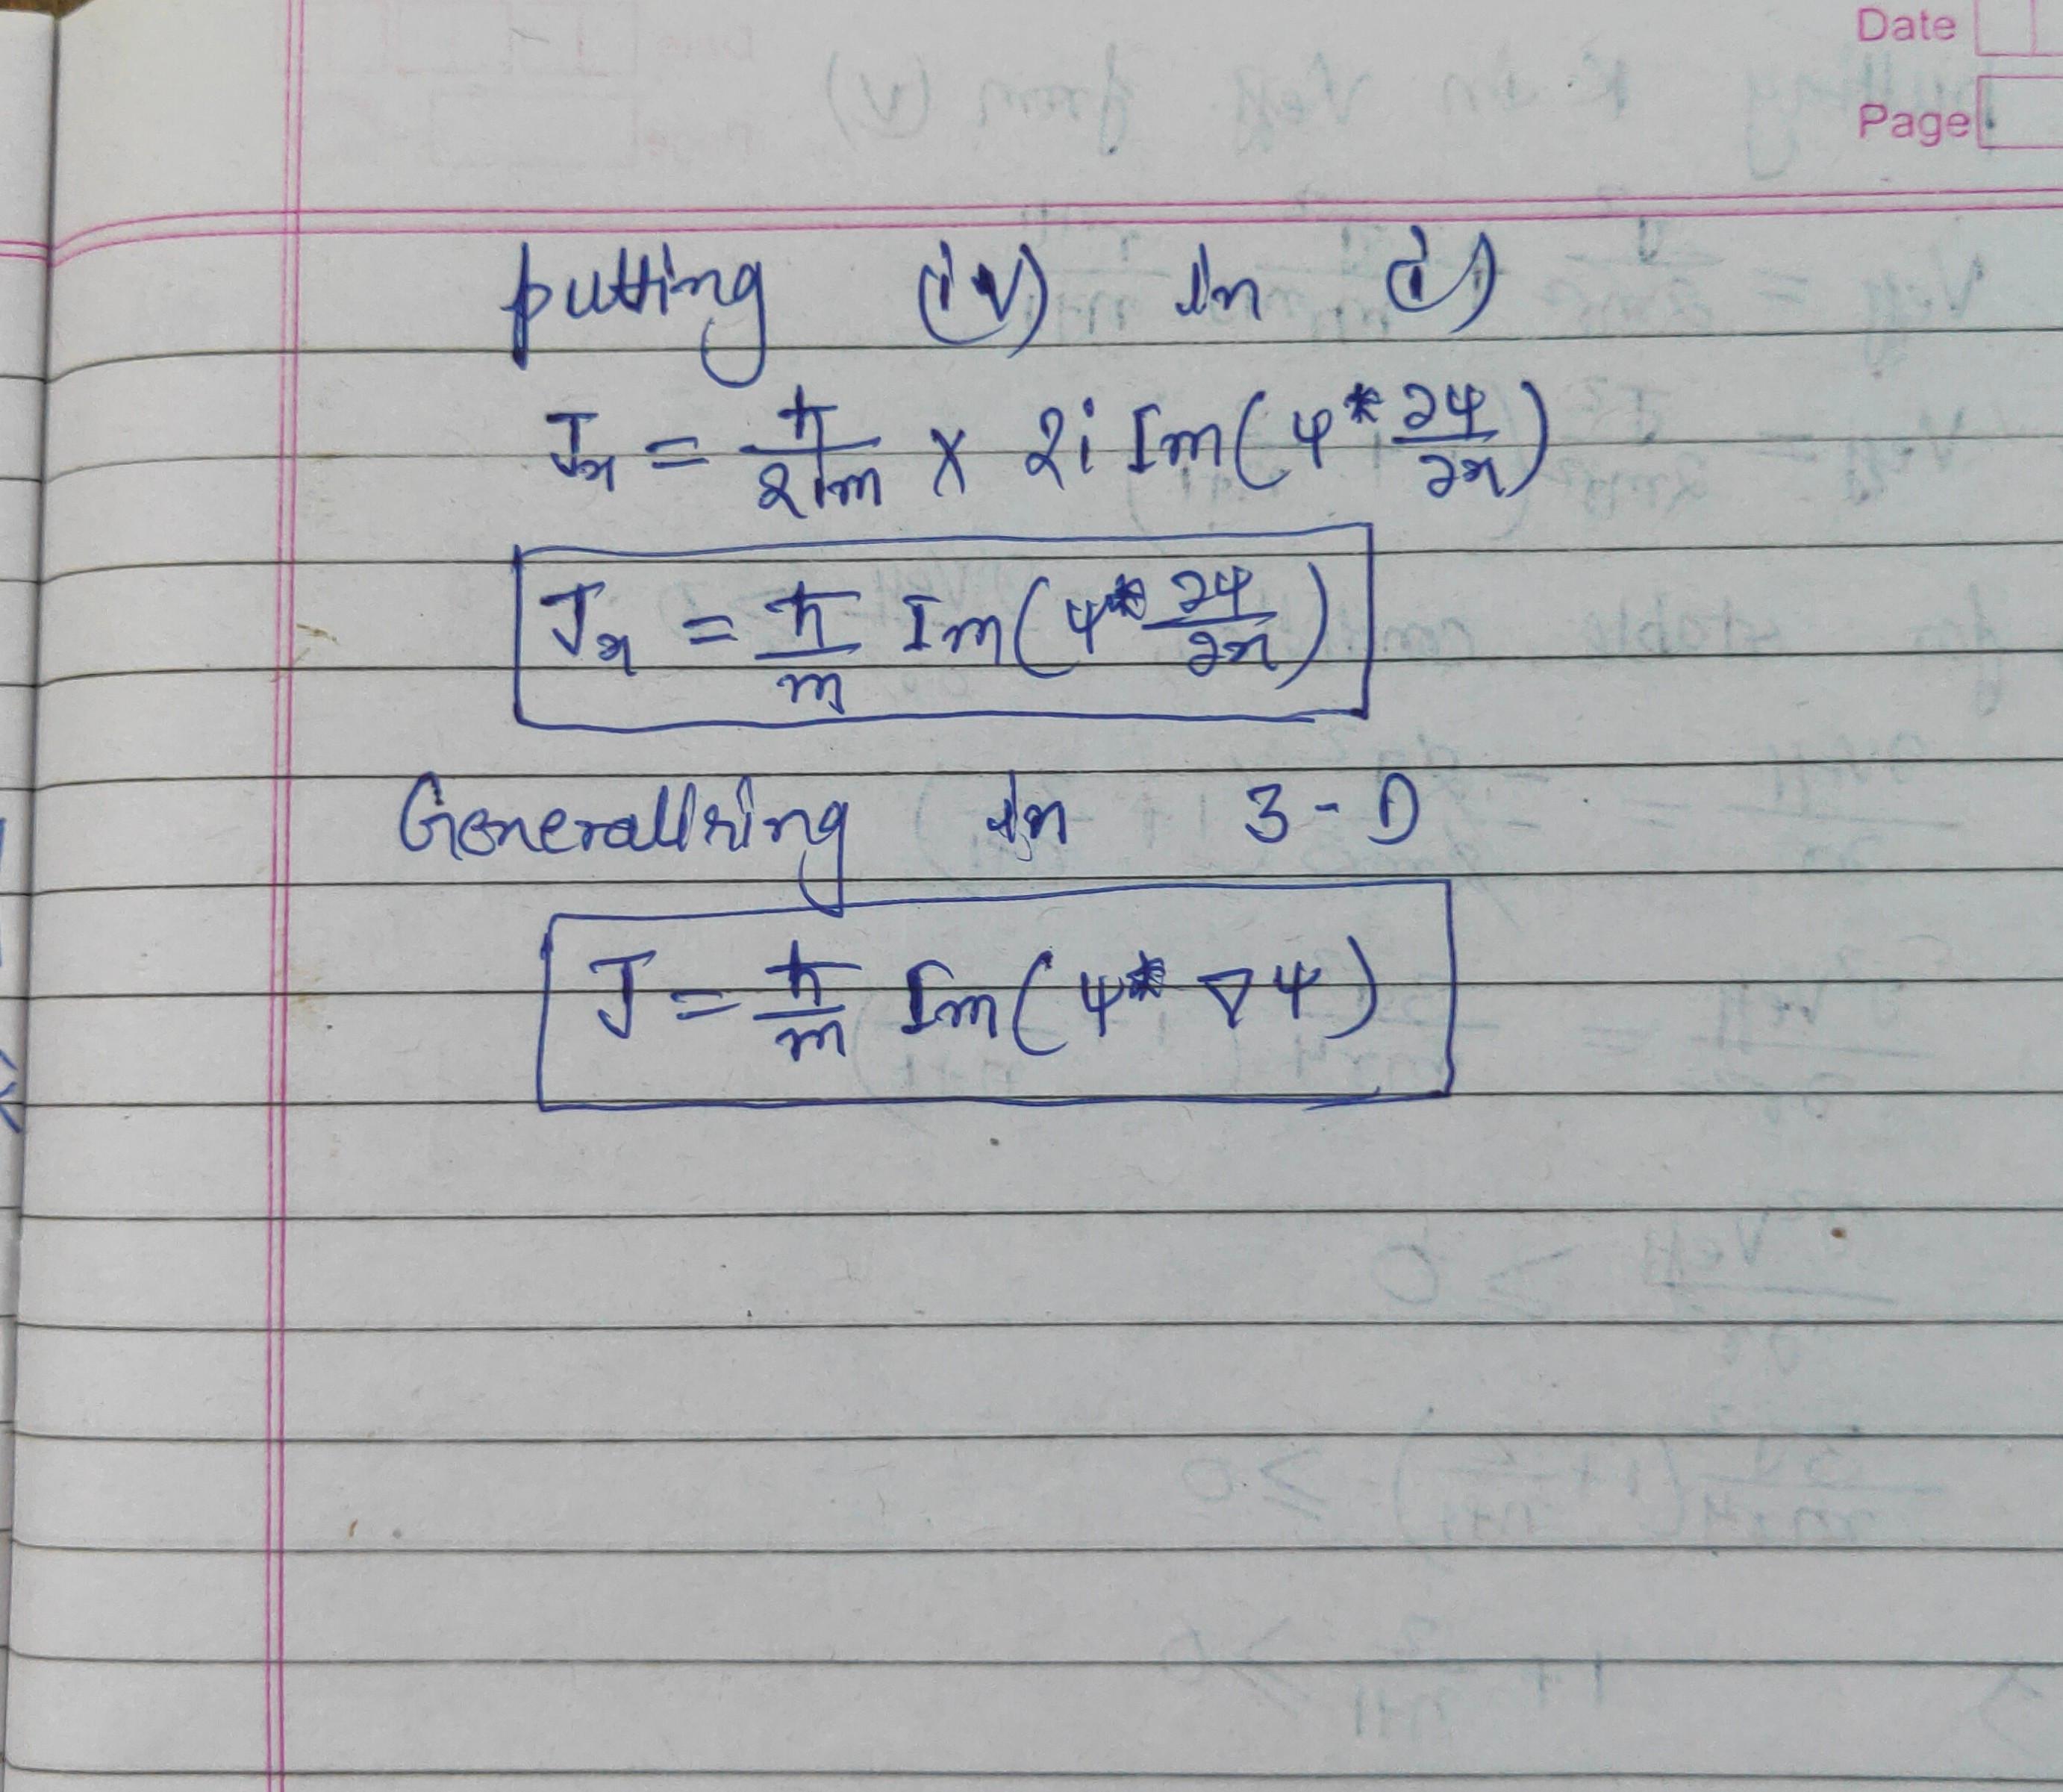 Date
Page
putting (iv) in (i)
Jx = ħ/2im × 2i Im(ψ* ∂ψ/∂x)
Jx = ħ/m Im(ψ* ∂ψ/∂x)
Generallizing in 3-D
J = ħ/m Im(ψ* ∇ψ)